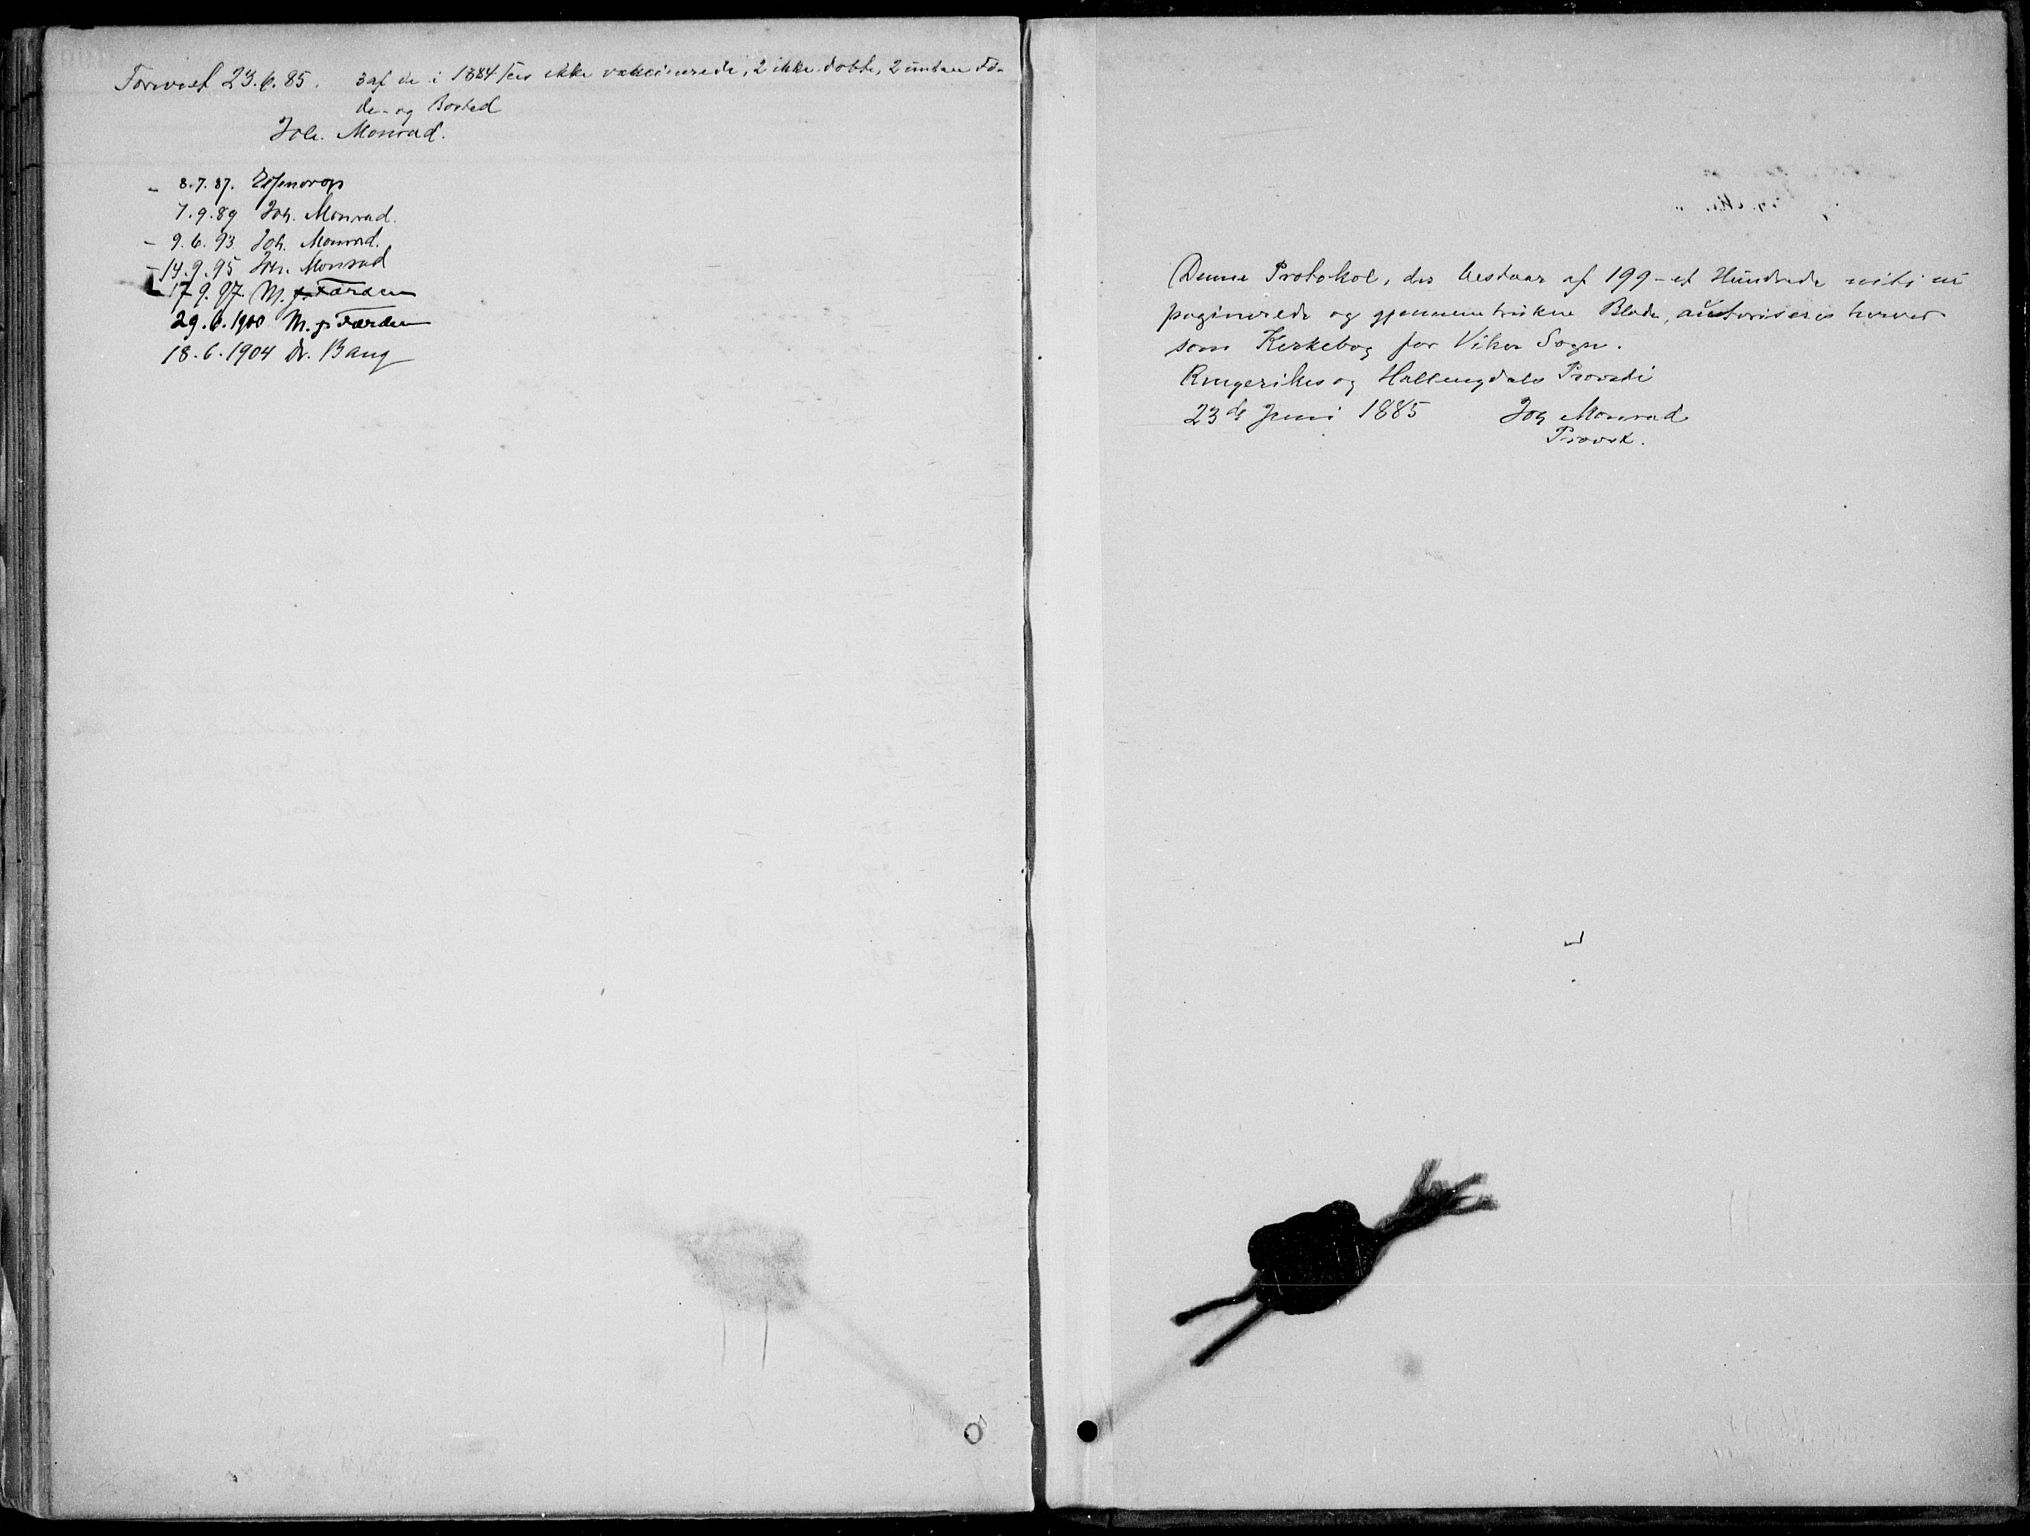 Forevist 23.6.85. 3 af de i 1884 ikke vaksinerede, 2 ikke døbte, 2 uden Fø-
de- og Bosted
Joh. Monrad.
- 8.7.87. Essendrop
7.9.89 Joh. Monrad.
- 9.6.93 Joh. Monrad.
- 14.9.95 Joh. Monrad
17.9.97 M. J. Færden
29.6.1900 M. J. Færden
18.6.1904 Dr. Bang
Denne Protokol, der bestaar af 199 - et Hundrede nitini
paginerede og gjennemtrukne Blade, autoriseres herved
som Kirkebog for Viker Sogn.
Ringerikes og Hallingdals Provsti
23de Juni 1885 Joh Monrad
Provst.